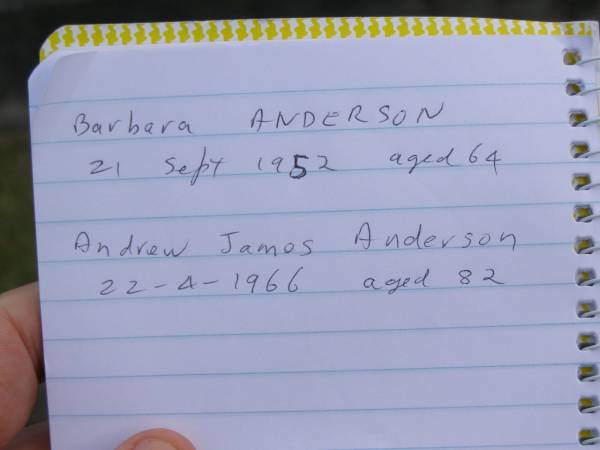 Barbara ANDERSON
21 Sept 1952 aged 64
Andrew James Anderson
22-4-1966 aged 82